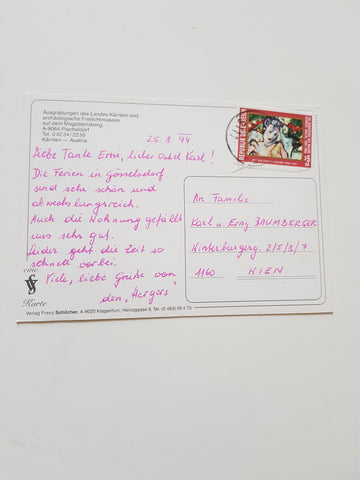 Ausgrabungen des Landes Kärnten und
archäologische Freilichtmuseen
auf dem Magdalensberg.
A-9064 Pischeldorf
Tel. 0 42 24 / 22 55
Kärnten – Austria
25. 8. 94.
Liebe Tante Erni, lieber Onkel Karl!
Die Ferien in Gösselsdorf
sind sehr schön und
abwechslungsreich.
Auch die Wohnung gefällt
uns sehr gut.
Leider geht die Zeit so
schnell vorbei.
Viele, liebe Grüße von
den "Hergers"
eine
Karte
Verlag Franz Schilcher, A-9020 Klagenfurt, Heinzgasse 6, Tel. (0 463) 56 4 75
REPUBLIK ÖSTERREICH
An Familie
Karl u. Erni BAUMBERGER
2/5/3/7
1160 WIEN